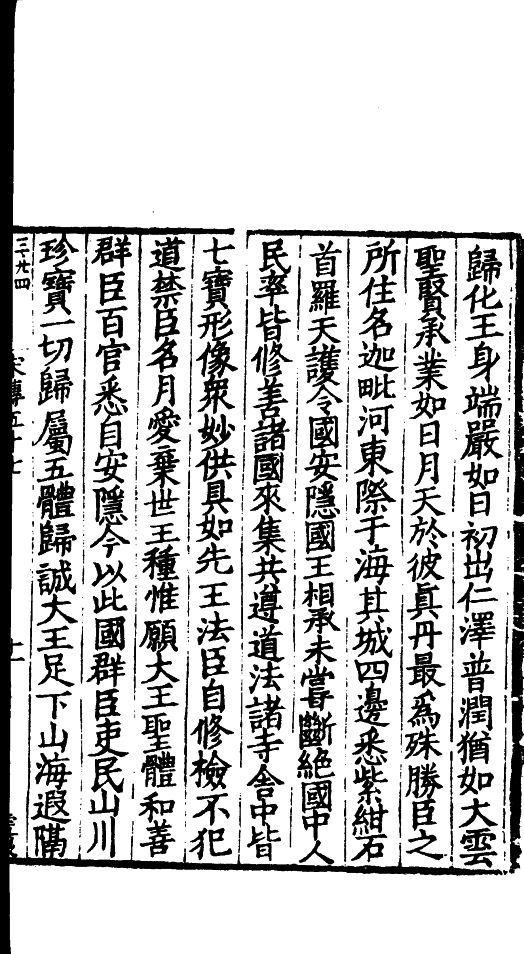 歸化王身端嚴如日初出仁澤普潤猶如大雲
聖賢承業如日月天於彼真丹最為殊勝臣之
所住名迦毗河東際于海其城四邊悉紫紺石
首羅天護令國安隱國王相承未嘗斷絕國中人
民率皆修善諸國來集共遵道法諸寺舍中皆
七寶形像衆妙供具如先王法臣自修檢不犯
道禁臣名月愛棄世王種惟願大王聖體和善
群臣百官悉自安隱今以此國群臣吏民山川
珍寶一切歸屬五體歸誠大王足下山海遐隔
宋傳五十七
十一